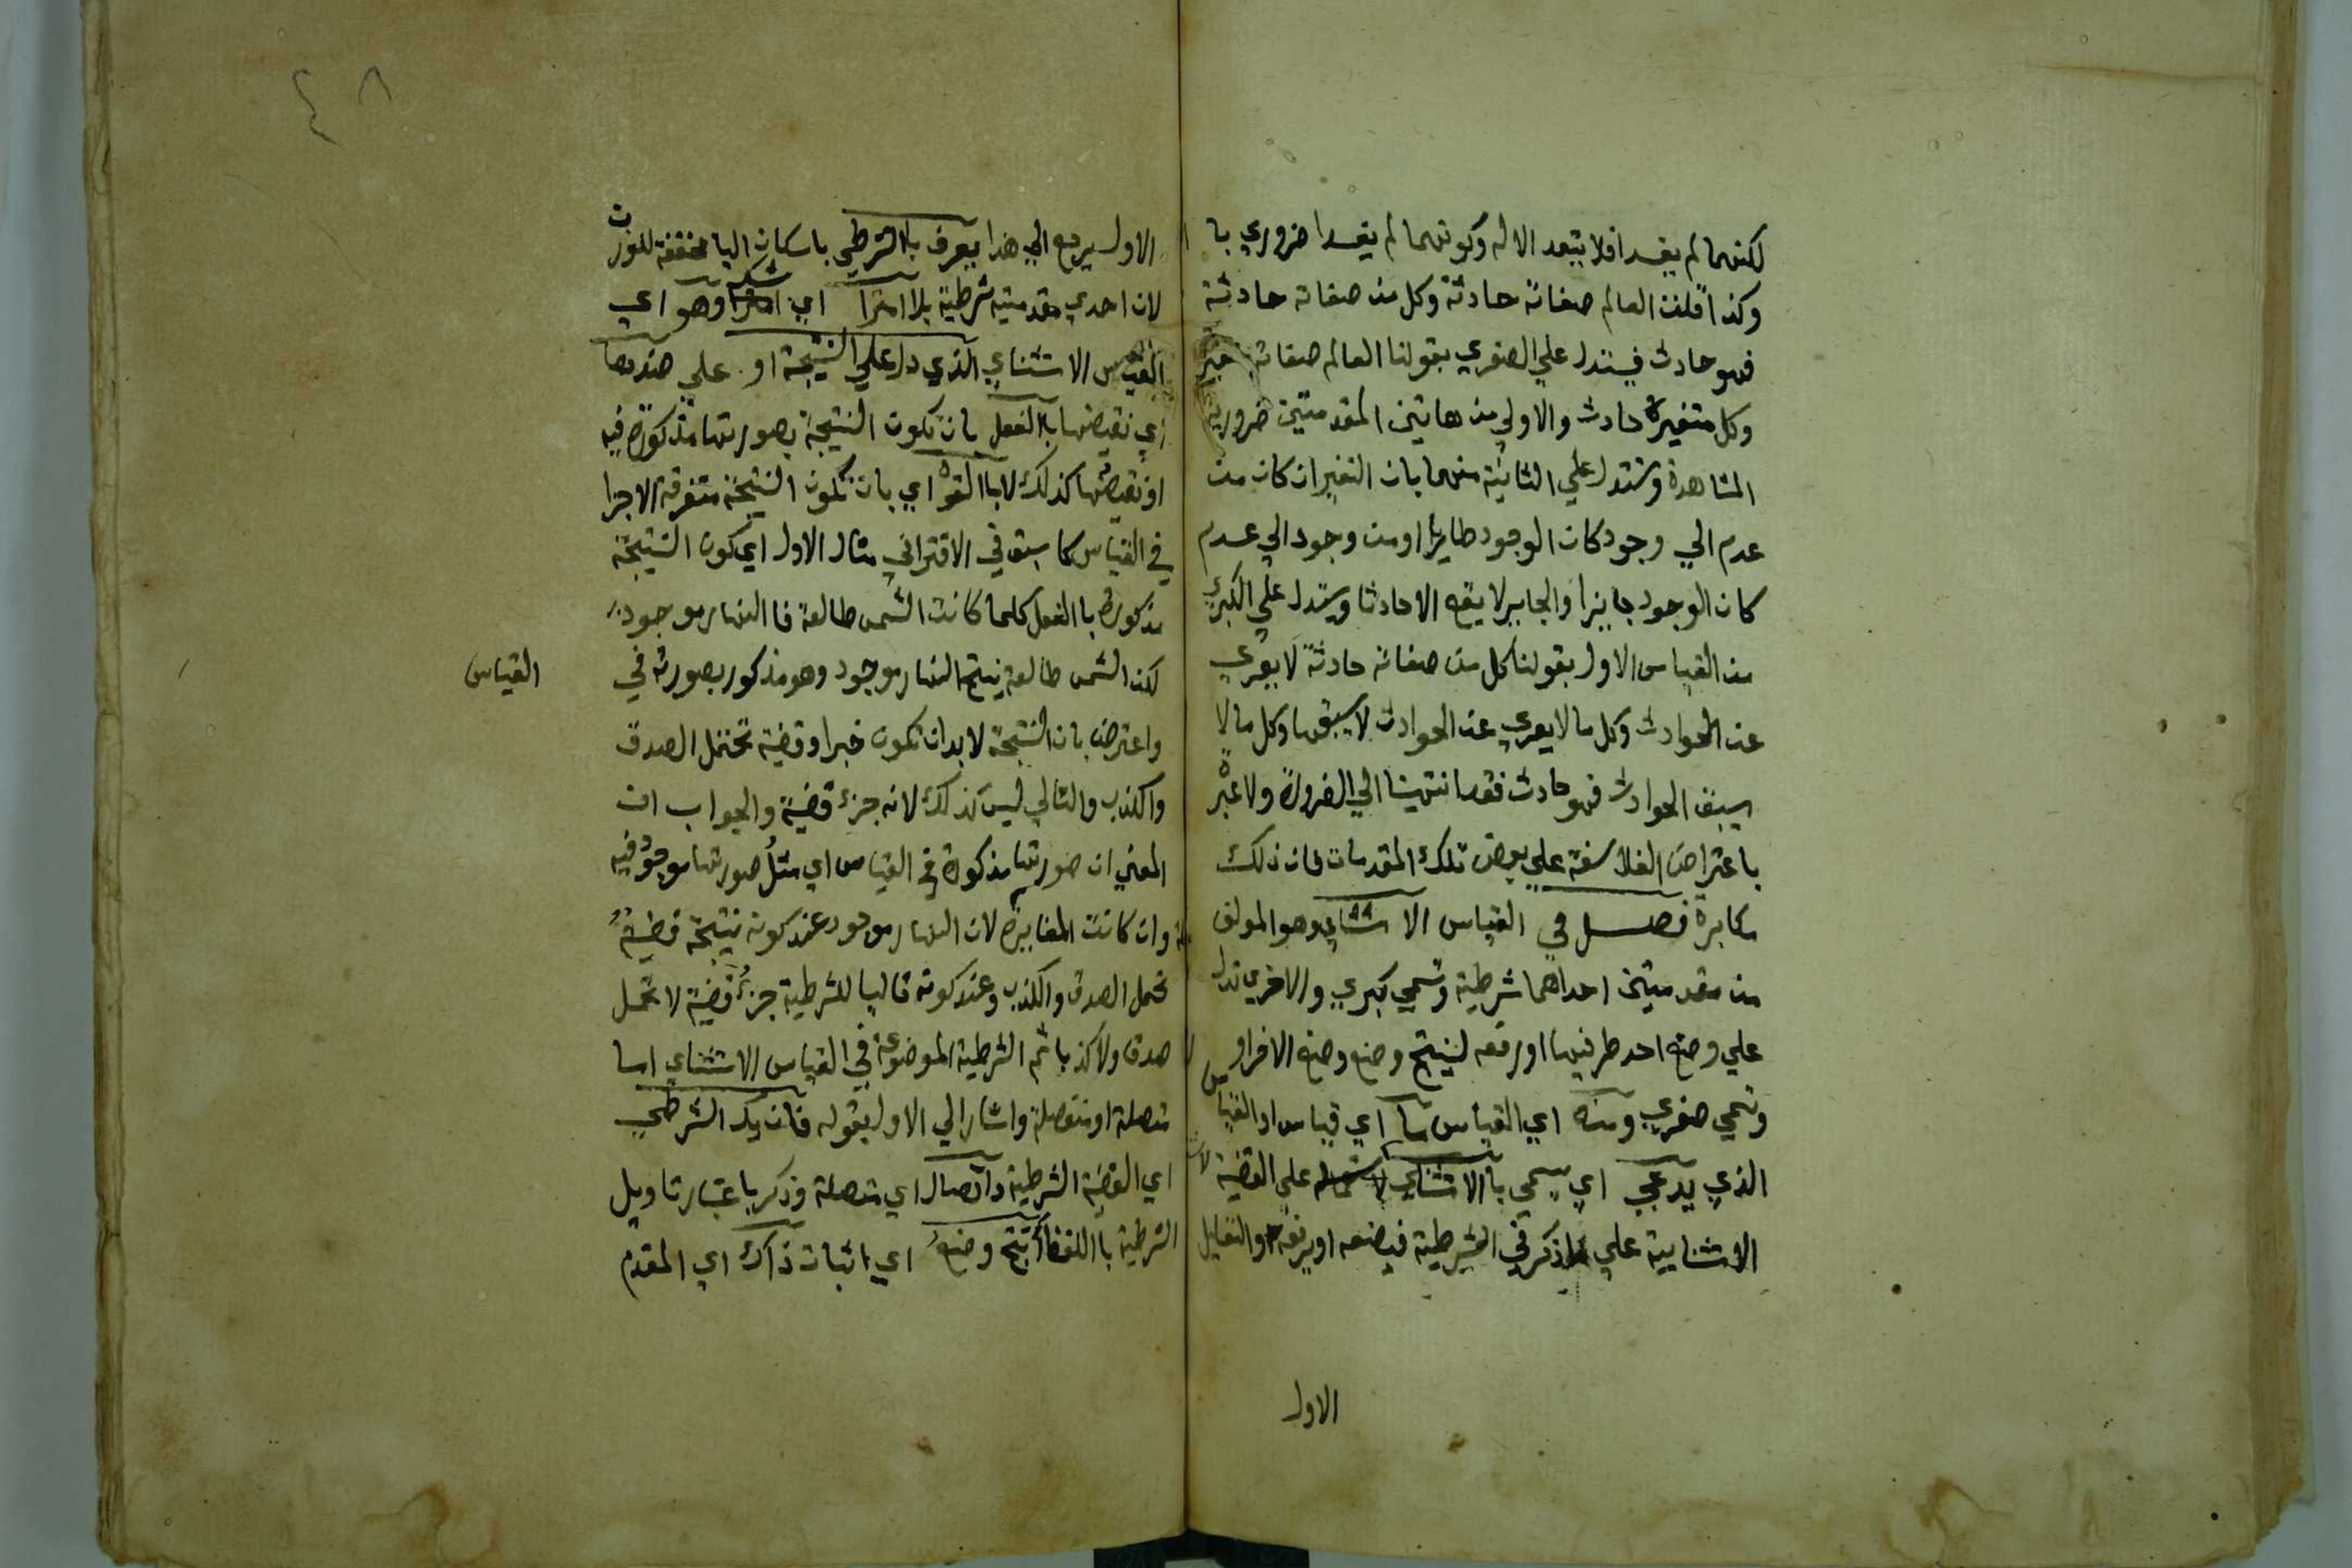 لكنهما لم يفسدا فلا يتعدد الاله وكونهما لم يفسدا ضروري با
وكذا قلنا العالم صفاته حادثة وكل من صفاته حادثة
فهو حادث فيستدل علي الصغري بقولنا العالم صفاته متغيرة
وكل متغيرة حادث والاولي من هاتين المقدمتين ضرورية
المشاهدة ويستدل علي الثانية منهما بان التغير ان كان من
عدم الي وجود كان الوجود طاريا او من وجود الي عدم
كان الوجود جايزا والجايز لا يقع الا حادثا ويستدل علي الكبري
من القياس الاول بقولنا كل من صفاته حادثة لا يعري
عن الحوادث وكل ما لا يعري عن الحوادث لا يسبقها وكل ما لا
يسبق الحوادث فهو حادث فقد انتهينا الي الضرورة ولا عبرة
باعتراض الفلاسفة علي بعض تلك المقدمات فان ذلك
مكابرة فصل في القياس الاستثناي وهو المولف
من مقدمتين احداهما شرطية وتسمي كبري والاخري تدل
علي وضع احد طرفيها او رفعه لينتج وضع وضع الاخر او
وتسمي صغري ومنه اي القياس ما اي قياس او القياس
الذي يدعي اي يسمي بالاستثناي لاشتماله علي القضية
الاستثنايية علي ما ذكر في الشرطية فيضعه او يرفعه والتعليل
الاول
٤٨
الاول يرجع الي هذا يعرف بالشرطي باسكان اليا مخففة للوزن
لان احدي مقدمتيه شرطية بلا امترا اي شك وهو اي
القياس الاستثناي الذي دل علي النتيجة او علي ضدها
اي نقيضها بالفعل بان تكون النتيجة بصورتها مذكورة فيه
او نقيضها كذلك لا بالقوة اي بان تكون النتيجة متفرقة الاجزا
في القياس كما سبق في الاقتراني مثال الاول اي كون النتيجة
مذكورة بالفعل كلما كانت الشمس طالعة فالنهار موجود
لكن الشمس طالعة ينتج النهار موجود وهو مذكور بصورته في
القياس
واعترض بان النتيجة لا بد ان تكون خبرا وقضية تحتمل الصدق
والكذب والتالي ليس كذلك لانه جزء قضية والجواب ان
المعني ان صورتها مذكورة في القياس اي مثل صورتها موجود فيه
وان كانت المغايرة لان النهار موجود عند كونه نتيجة قضية
تحمل الصدق والكذب وعند كونه تاليا للشرطية جزء قضية لا تحتمل
صدقا ولا كذبا ثم الشرطية الموضوعة في القياس الاستثناي اما
متصلة او منفصلة واشار الي الاول بقوله فان يك الشرطي
اي القضية الشرطية ذا اتصال اي متصلة وذكر باعتبار تاويل
الشرطية باللفظ انتج وضع اي اثبات ذاك اي المقدم